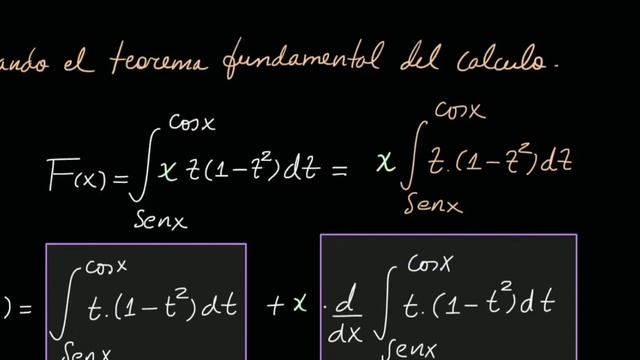 ando el teorema fundamental del calculo.
F(x) = ∫_{senx}^{cosx} x t(1-t²)dt = x ∫_{senx}^{cosx} t.(1-t²)dt
) = ∫_{senx}^{cosx} t.(1-t²)dt + x . d/dx ∫_{senx}^{cosx} t.(1-t²)dt